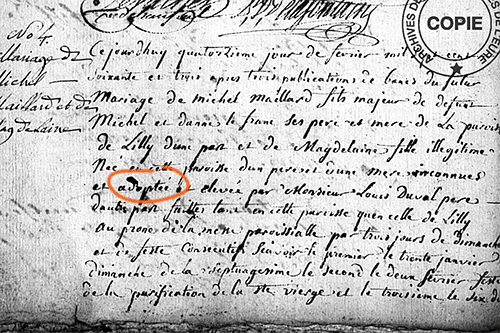 COPIE
ARCHIVES DE
DE L'EURE
No 4.
Mariage de
Michel
Maillard et de
Magdelaine
Cejourdhuy quatorzieme jour de fevrier mil cent
soixante et trois apres trois publications de bancs du futur
Mariage de michel Maillard fils majeur de defunt
Michel et danne le franc ses pere et mere de La paroisse
de Lilly dune part et de Magdelaine fille illegitime
Nee en cette paroisse dun pere et d'une mere inconnues
et adoptée elevee par Monsieur Louis Duval pere
dautre part faittes tant en cette paroisse quen celle de Lilly
au prone de la messe paroissialle par trois jours de dimanche
et feste Consecutifs scavoir le premier le trente janvier
dimanche de la Septuagesime le second le deux fevrier feste
de la purification de la ste vierge et le troisieme le six d